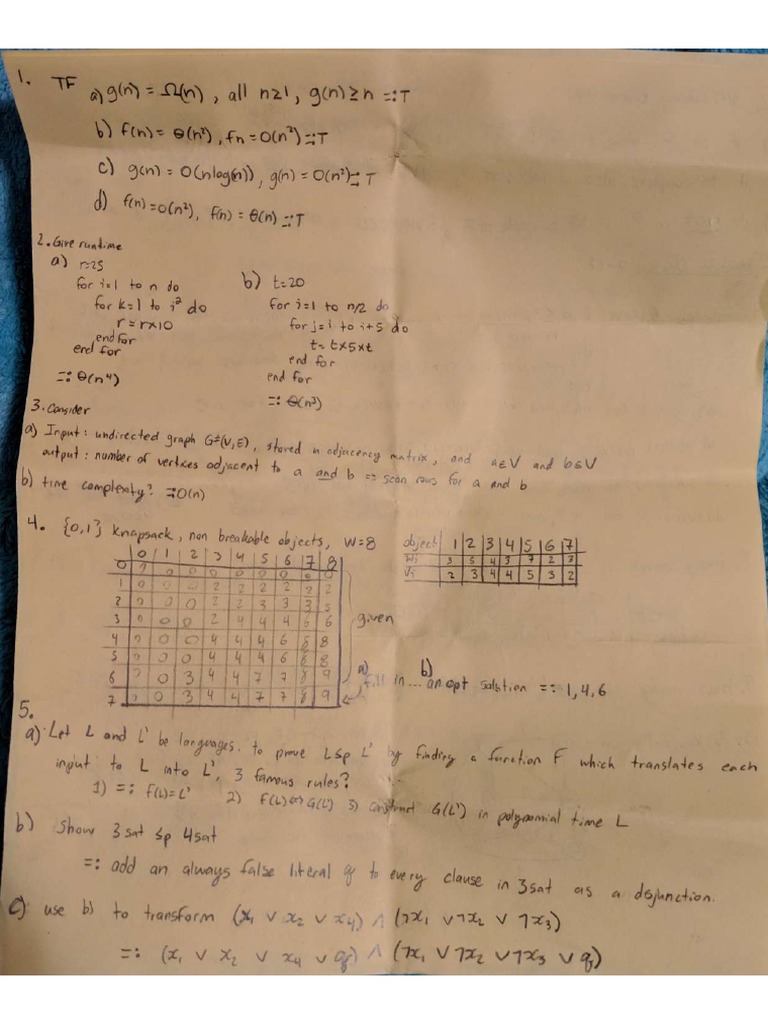 1. TF a) g(n) = Ω(n), all n≥1, g(n) ≥ n =: T
b) f(n) = Θ(n²), fn = O(n²) =: T
c) g(n) = O(nlog(n)), g(n) = O(n²) =: T
d) f(n) = O(n²), f(n) = Θ(n) =: T
2. Give runtime
a) r=25
for i=1 to n do
for k=1 to i² do
r = r×10
end for
end for
=: Θ(n⁴)
b) t=20
for i=1 to n/2 do
for j=i to i+5 do
t= t×5×t
end for
end for
=: Θ(n³)
3. Consider
a) Input: undirected graph G=(V,E), stored in adjacency matrix, and a∈V and b∈V
output: number of vertices adjacent to a and b =: scan rows for a and b
b) time complexity? =: O(n)
4. {0,1} knapsack, non breakable objects, W=8
0 1 2 3 4 5 6 7 8
0 0 0 0 0 0 0 0 0 0
1 0 0 0 2 2 2 2 2 2
2 0 0 0 2 2 3 3 3 5
3 0 0 0 2 4 4 4 6 6
4 0 0 0 4 4 4 6 8 8
5 0 0 0 4 4 4 6 8 8
6 0 0 3 4 4 7 7 8 9
7 0 0 3 4 4 7 7 8 9
given
object 1 2 3 4 5 6 7
Wi 3 5 4 3 7 2
Vi 2 3 4 4 5 3 2
a) fill in...
b) an opt solution =: 1, 4, 6
5.
a) Let L and L' be languages. to prove L≤p L' by finding a function F which translates each
input to L into L', 3 famous rules?
1) =: f(L)=L' 2) F(L)⇔G(L') 3) construct G(L') in polynomial time L
b) Show 3sat ≤p 4sat
=: add an always false literal q to every clause in 3sat as a disjunction.
c) use b) to transform (x₁ ∨ x₂ ∨ x₄) ∧ (¬x₁ ∨ ¬x₂ ∨ ¬x₃)
=: (x₁ ∨ x₂ ∨ x₄ ∨ q) ∧ (¬x₁ ∨ ¬x₂ ∨ ¬x₃ ∨ q)